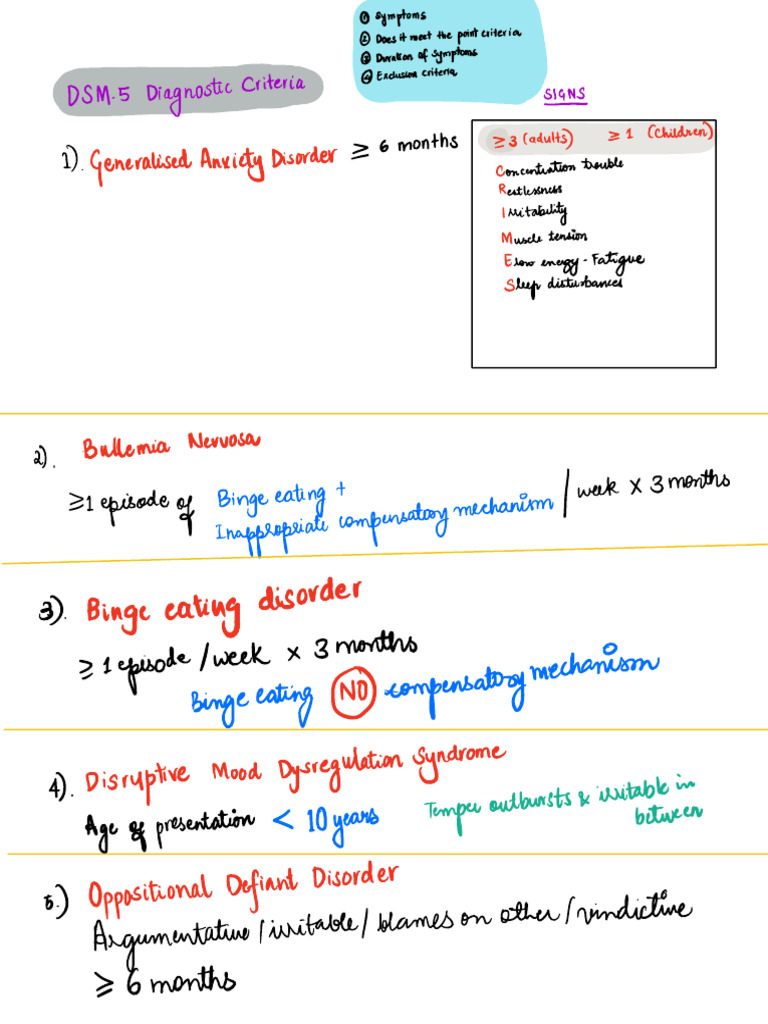 ① Symptoms
② Does it meet the point criteria
③ Duration of symptoms
④ Exclusion criteria
DSM-5 Diagnostic Criteria
SIGNS
1). Generalised Anxiety Disorder ≥ 6 months
≥3 (adults) ≥ 1 (Children)
Concentration trouble
Restlessness
Irritability
Muscle tension
E low energy - Fatigue
Sleep disturbances
2). Bullemia Nervosa
≥1 episode of Binge eating +
Inappropriate compensatory mechanism / week x 3 months
3). Binge eating disorder
≥ 1 episode / week x 3 months
Binge eating NO compensatory mechanism
4). Disruptive Mood Dysregulation Syndrome
Age of presentation < 10 years
Temper outbursts & irritable in
between
5.) Oppositional Defiant Disorder
Argumentative / irritable / blames on other / vindictive
≥ 6 months